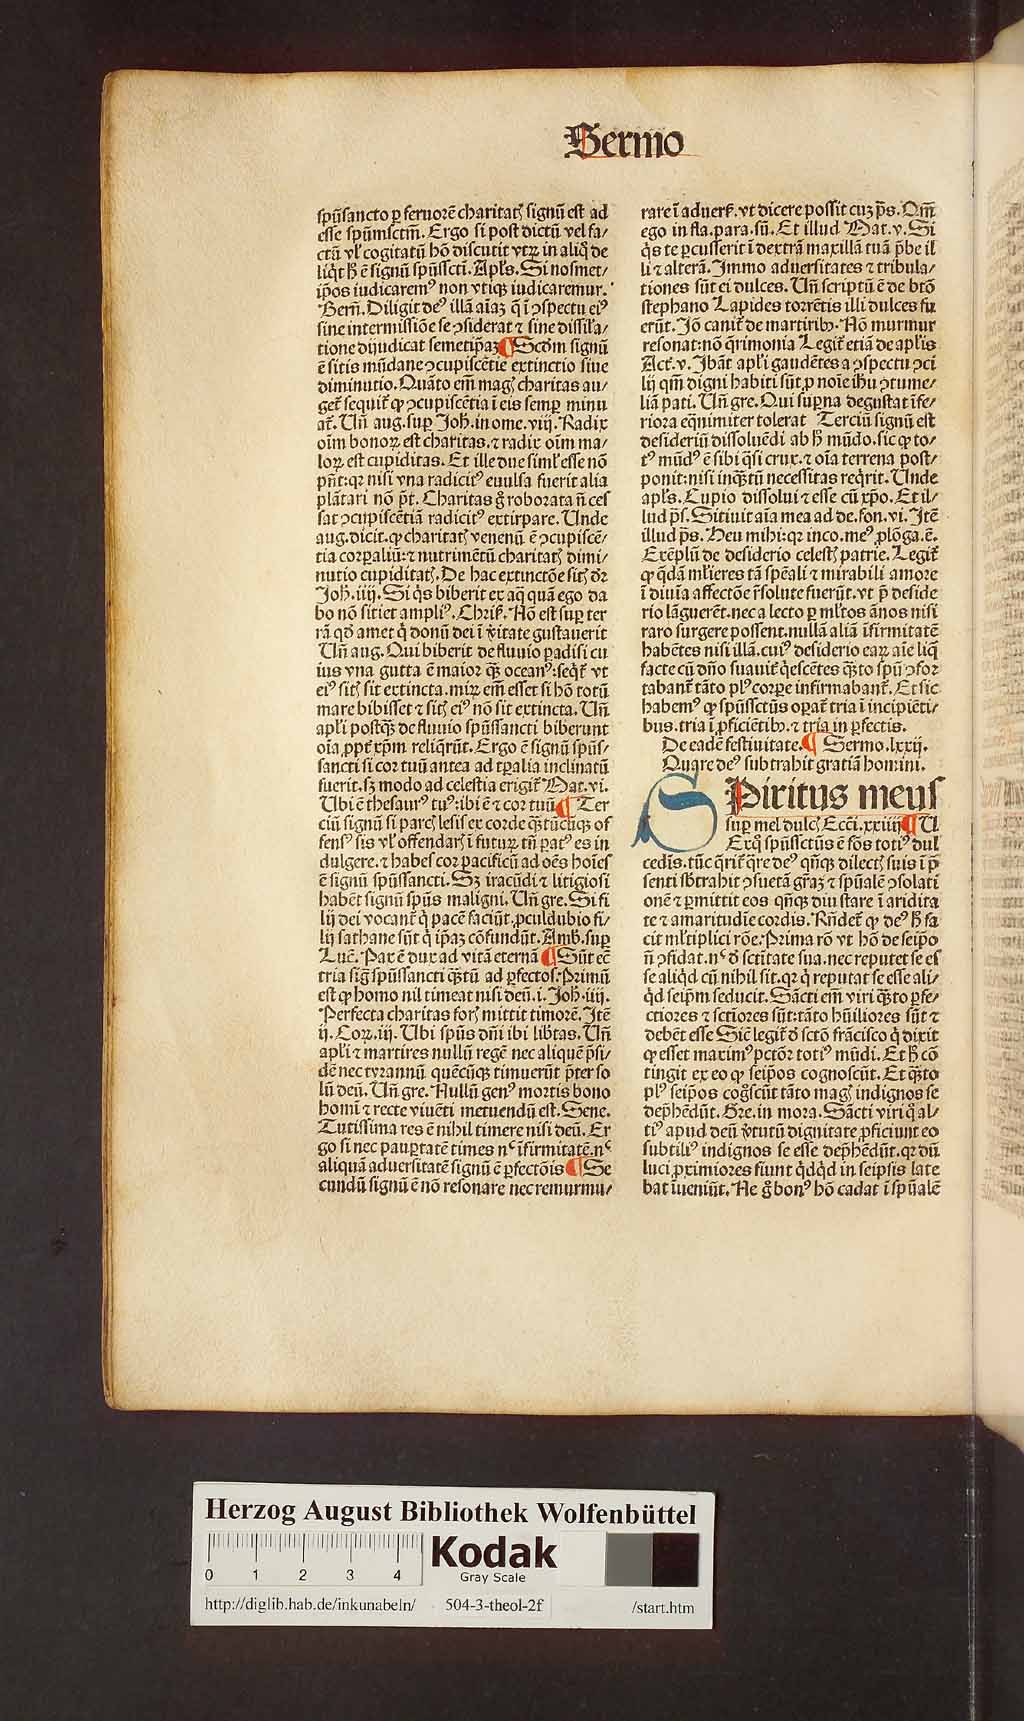 Sermo
spūsancto ꝑ feruorē charitatꝭ signū est ad
esse spūmsctm̄. Ergo si post dictū vel fa-
ctū vl' cogitatū hō discutit vtꝝ in aliq̊ de
liq̄t ħ ē signū spūssctī. Apl's. Si nosmet-
ip̄os iudicarem⁹ non vtiqꝫ iudicaremur.
Bern̄. Diligit de⁹ illā aīaꝫ q̄ ī ↄspectu ei⁹
sine intermissiōe se ↄsiderat ⁊ sine dissil'a-
tione dijudicat semetip̄aꝫ ¶ Scd̄m signū
ē sitis mūdane ↄcupiscētie extinctio siue
diminutio. Quāto em̄ magꝭ charitas au-
get᷑ sequit᷑ ꝙ ↄcupiscētia ī eis semꝑ minu
at᷑. Vn̄ aug. suꝑ Joh. in ome. viij. Radix
oīm bonoꝝ est charitas. ⁊ radix oīm ma-
loꝝ est cupiditas. Et ille due siml' esse nō
pn̄t: qꝛ nisi vna radicit⁹ euulsa fuerit alia
plātari nō p̄t. Charitas g̊ roborata ñ ces
sat ↄcupiscētiā radicit⁹ extirpare. Vnde
aug. dicit. ꝙ charitatꝭ venenū ē ↄcupiscē-
tia corꝑaliū: ⁊ nutrimētū charitatꝭ dimi-
nutio cupiditatꝭ. De hac extinctōe sitꝭ dr̄
Joh. iiij. Si q̄s biberit ex aq̄ quā ego da
bo nō sitiet ampli⁹. Chris. Nō est suꝑ ter
rā qd̄ amet q̇ donū dei ī v̓itate gustauerit
Vn̄ aug. Qui biberit de fluuio ꝑadisi cu
ius vna gutta ē maior qᷓꝫ ocean⁹: seq̄t᷑ vt
ei⁹ sitꝭ sit extincta. miꝝ em̄ esset si hō totū
mare bibisset ⁊ sitꝭ ei⁹ nō sit extincta. Vn̄
apl'i postqᷓꝫ de fluuio spūssancti biberunt
oīa ꝓpt᷑ xp̄m reliq̄rūt. Ergo ē signū spūs-
sancti si cor tuū antea ad tꝑalia inclinatū
fuerit. sꝫ modo ad celestia erigit᷑ Mat. vi.
Vbi ē thesaur⁹ tu⁹: ibi ē ⁊ cor tuū ¶ Ter
ciū signū si parcꝭ lesis ex corde qᷓꝫtūcūqꝫ of
fens⁹ sis vl' offendarꝭ ī futuꝝ tn̄ ꝑat⁹ es in
dulgere. ⁊ habes cor pacificū ad oēs hoīes
ē signū spūssancti. Sꝫ iracūdi ⁊ litigiosi
habēt signū spūs maligni. Vn̄ gre. Si fi
lij dei vocant᷑ q̇ pacē faciūt. ꝓculdubio fi-
lij sathane sūt q̇ ip̄aꝫ cōfundūt. Amb. suꝑ
Luc̄. Pax ē dux ad vitā eternā ¶ Sūt ec̄
tria sig᷑ spūssancti qᷓꝫtū ad ꝑfectos. Primū
est ꝙ homo nil timeat nisi deū. i. Joh. iiij.
Perfecta charitas forꝭ mittit timorē. Itē
ij. Corꝝ. iij. Vbi spūs dn̄i ibi libtas. Vn̄
apl'i ⁊ martires nullū regē nec aliquē p̄si-
dē nec tyrannū quēcūqꝫ timuerūt p̄ter so
lū deū. Vn̄ gre. Nullū gen⁹ mortis bono
homī ⁊ recte viuēti metuendū est. Sene.
Tutissima res ē nihil timere nisi deū. Er
go si nec pauꝑtatē times nᶜ īfirmitatē. nᶜ
aliquā aduersitatē signū ē ꝑfectōis ¶ Se
cundū signū ē nō resonare nec remurmu-
rare ī aduers̄. vt dicere possit cuꝫ ps̄. Qm̄
ego in fla. para. sū. Et illud Mat. v. Si
q̄s te ꝑcusserit ī dextrā maxillā tuā p̄be il
li ⁊ alterā. Immo aduersitates ⁊ tribula-
tiones sūt ei dulces. Vn̄ scriptū ē de btō
stephano Lapides torrētis illi dulces fu
erūt. Jō canit᷑ de martiribꝰ. Nō murmur
resonat: nō q̄rimonia Legit᷑ etiā de apl'is
Act. v. Ibāt apl'i gaudētes a ↄspectu ↄci
lij qm̄ digni habiti sūt ꝓ noīe ih̄u ↄtume-
liā pati. Vn̄ gre. Qui suꝑna degustat īfe-
riora eq̄nimiter tolerat Terciū signū est
desideriū dissoluēdi ab ħ mūdo. sic ꝙ to-
t⁹ mūd⁹ ē sibi q̄si crux. ⁊ oīa terrena post-
ponit: nisi inqᷓꝫtū necessitas req̇rit. Vnde
apl's. Cupio dissolui ⁊ esse cū xp̄o. Et il-
lud ps̄. Sitiuit aīa mea ad de. fon. vi. Itē
illud ps̄. Heu mihi: qꝛ inco. me⁹ ꝓlōga. ē.
Exēplū de desiderio celestꝭ patrie. Legit᷑
ꝙ q̄dā ml'ieres tā spēali ⁊ mirabili amore
ī diuīa affectōe r̄solute fuerūt. vt p̄ deside
rio lāguerēt. nec a lecto ꝑ ml'tos ānos nisi
raro surgere possent. nullā aliā īfirmitatē
habētes nisi illā. cui⁹ desiderio eaꝝ aīe liq̄
facte cū dn̄o suauit᷑ q̇escētes qᷓꝫto spū ↄfor
tabant᷑ tāto pl⁹ corꝑe infirmabant᷑. Et sic
habem⁹ ꝙ spūssctūs oꝑat᷑ tria ī incipiēti-
bus. tria ī ꝓficiētibꝰ. ⁊ tria in ꝑfectis.
De eadē festiuitate. ¶ Sermo. lxxij.
Quare de⁹ subtrahit gratiā homini.
SPiritus meus
suꝑ mel dulcꝭ Ecc̄i. xxiiij ¶ U
Exq̊ spūssctūs ē fōs toti⁹ dul
cedis. tūc q̄rit᷑ q̄re de⁹ qn̄qꝫ dilectꝭ suis ī p̄
senti sb̄trahit ↄsuetā gr̄aꝫ ⁊ spūalē ↄsolati
onē ⁊ ꝑmittit eos qn̄qꝫ diu stare ī aridita
te ⁊ amaritudīe cordis. Rn̄det᷑ ꝙ de⁹ ħ fa
cit ml'tiplici rōe. Prima rō vt hō de seip̄o
ñ ↄfidat. nᶜ ð sctītate sua. nec reputet se es
se aliqd̄ cū nihil sit. qꝛ q̇ reputat se esse ali-
q̇d seip̄m seducit. Sācti em̄ viri qᷓꝫto ꝑfe-
ctiores ⁊ sctīores sūt: tāto hūiliores sūt ⁊
debēt esse Sic̄ legit᷑ ð sctō frācisco q̇ dixit
ꝙ esset maxim⁹ pctōr toti⁹ mūdi. Et ħ cō
tingit ex eo ꝙ seip̄os cognoscūt. Et qᷓꝫto
pl⁹ seip̄os cog̊scūt tāto magꝭ indignos se
dep̄hēdūt. Gre. in mora. Sācti viri q̊ al-
ti⁹ apud deū v̓tutū dignitate ꝓficiunt eo
subtili⁹ indignos se esse dep̄hēdūt. qꝛ dū
luci ꝓximiores fiunt q̇dq̇d in seipsis late
bat īueniūt. Ne g̊ bon⁹ hō cadat ī spūalē
Herzog August Bibliothek Wolfenbüttel
0 1 2 3 4
Kodak
Gray Scale
http://diglib.hab.de/inkunabeln/ 504-3-theol-2f /start.htm